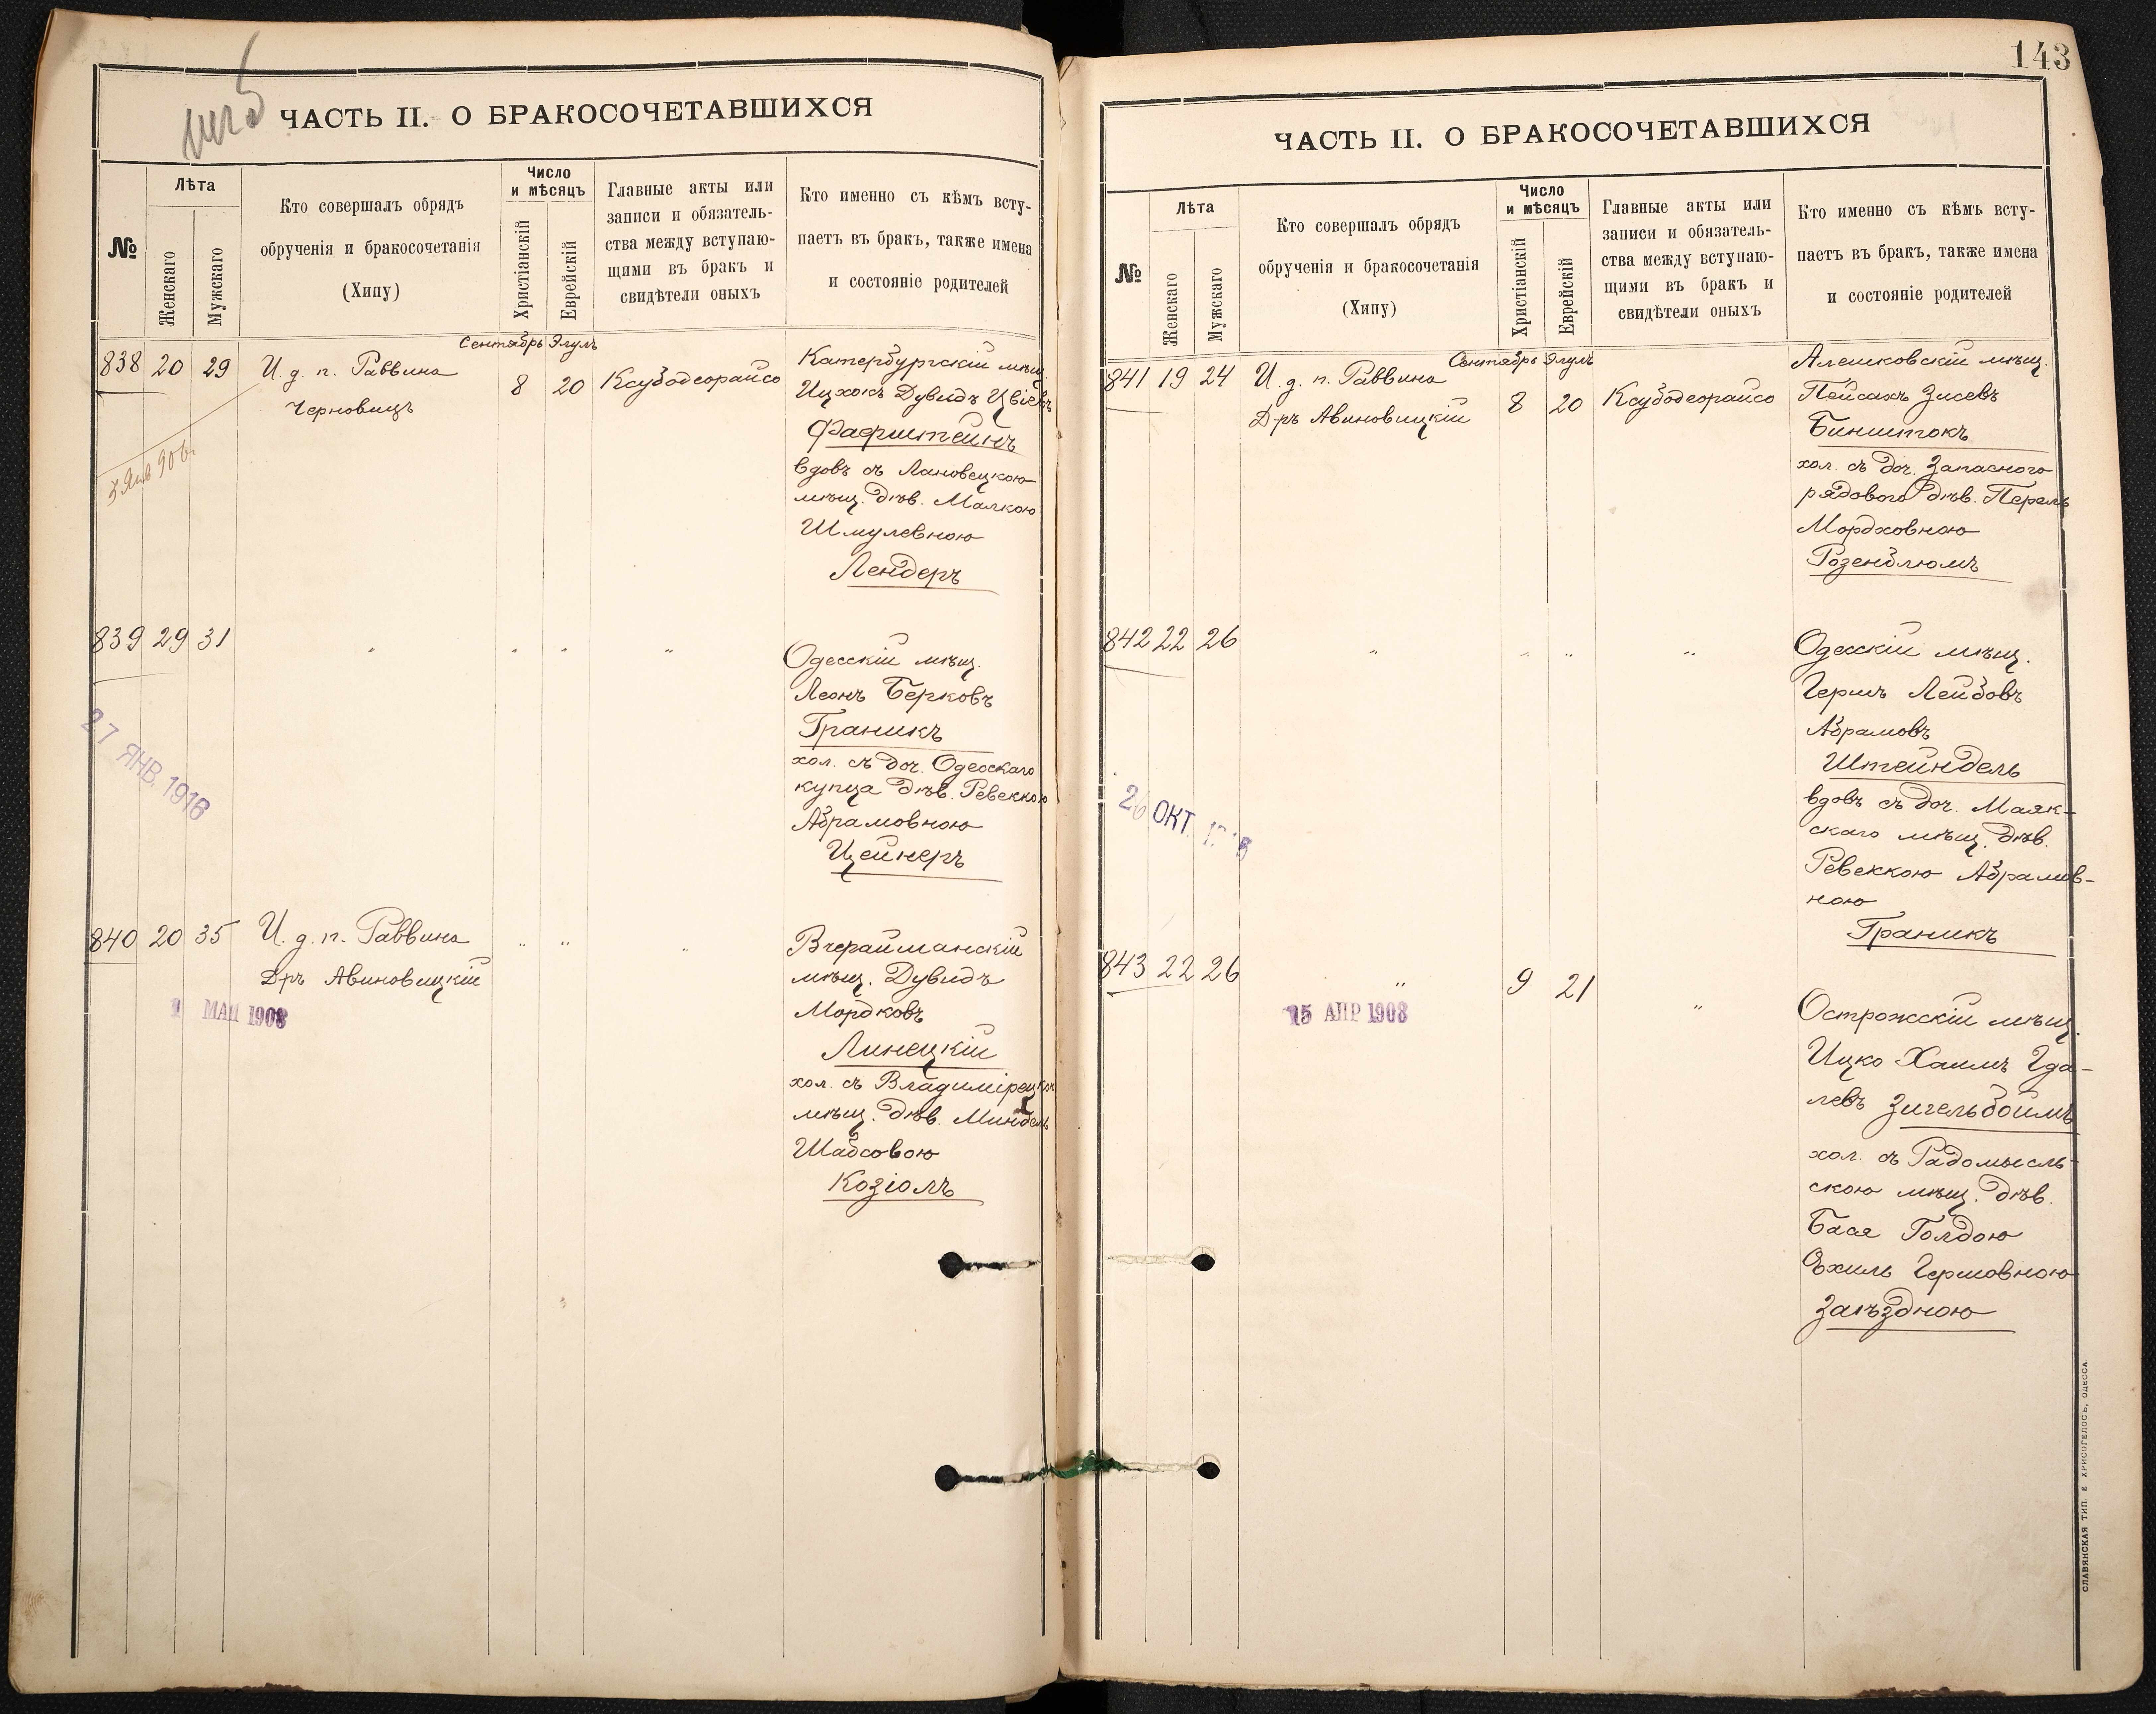 ЧАСТЬ II. О БРАКОСОЧЕТАВШИХСЯ
№
Лѣта
Женскаго
Мужскаго
Кто совершалъ обрядъ
обрученія и бракосочетанія
(Хипу)
Число
и мѣсяцъ
Христіанскій
Еврейскій
Главные акты или
записи и обязатель-
ства между вступаю-
щими въ бракъ и
свидѣтели оныхъ
Кто именно съ кѣмъ всту-
паетъ въ бракъ, также имена
и состояніе родителей
Сентябрь Элулъ
838 20 29
И. д. п. Раввина
Черновицъ
8 20
Ксубодеорайсо
Катербургскій мѣщ.
Ицхокъ Дувидъ Цвіевъ
Фаерштейнъ
вдовъ съ Лановецкою
мѣщ. дѣв. Малкою
Шмулевною
Лендеръ
839 29 31
" " " "
Одесскій мѣщ.
Леонъ Берковъ
Граникъ
хол. съ доч. Одесскаго
купца дѣв. Ревеккою
Абрамовною
Цейнеръ
27 ЯНВ. 1916
840 20 35
И. д. п. Раввина
Дръ Авиновицкій
МАЯ 1908
" " "
Вчерайшанскій
мѣщ. Дувидъ
Мордковъ
Линецкій
хол. съ Владимірецкою
мѣщ. дѣв. Миндель
Шабсовою
Козіолъ
143
ЧАСТЬ II. О БРАКОСОЧЕТАВШИХСЯ
№
Лѣта
Женскаго
Мужскаго
Кто совершалъ обрядъ
обрученія и бракосочетанія
(Хипу)
Число
и мѣсяцъ
Христіанскій
Еврейскій
Главные акты или
записи и обязатель-
ства между вступаю-
щими въ бракъ и
свидѣтели оныхъ
Кто именно съ кѣмъ всту-
паетъ въ бракъ, также имена
и состояніе родителей
Сентябрь Элулъ
841 19 24
И. д. п. Раввина
Дръ Авиновицкій
8 20
Ксубодеорайсо
Алешковскій мѣщ.
Пейсахъ Зисевъ
Бинштокъ
хол. съ доч. Запаснаго
рядового дѣв. Перель
Мордховною
Розенблюмъ
842 22 26
" " " "
Одесскій мѣщ.
Гершъ Лейбовъ
Абрамовъ
Штейндель
вдовъ съ доч. Маяк-
скаго мѣщ. дѣв.
Ревеккою Абрамов-
ною
Граникъ
ОКТ.
843 22 26
"
15 АПР 1908
9 21
"
Острожскій мѣщ.
Ицко Хаимъ Гда-
левъ Зигельбоймъ
хол. съ Радомысль-
скою мѣщ. дѣв.
Бася Голдою
Ѣхиль Гершовною
Заѣздною
СЛАВЯНСКАЯ ТИП. Е ХРИСОГЕЛОСЪ, ОДЕССА.